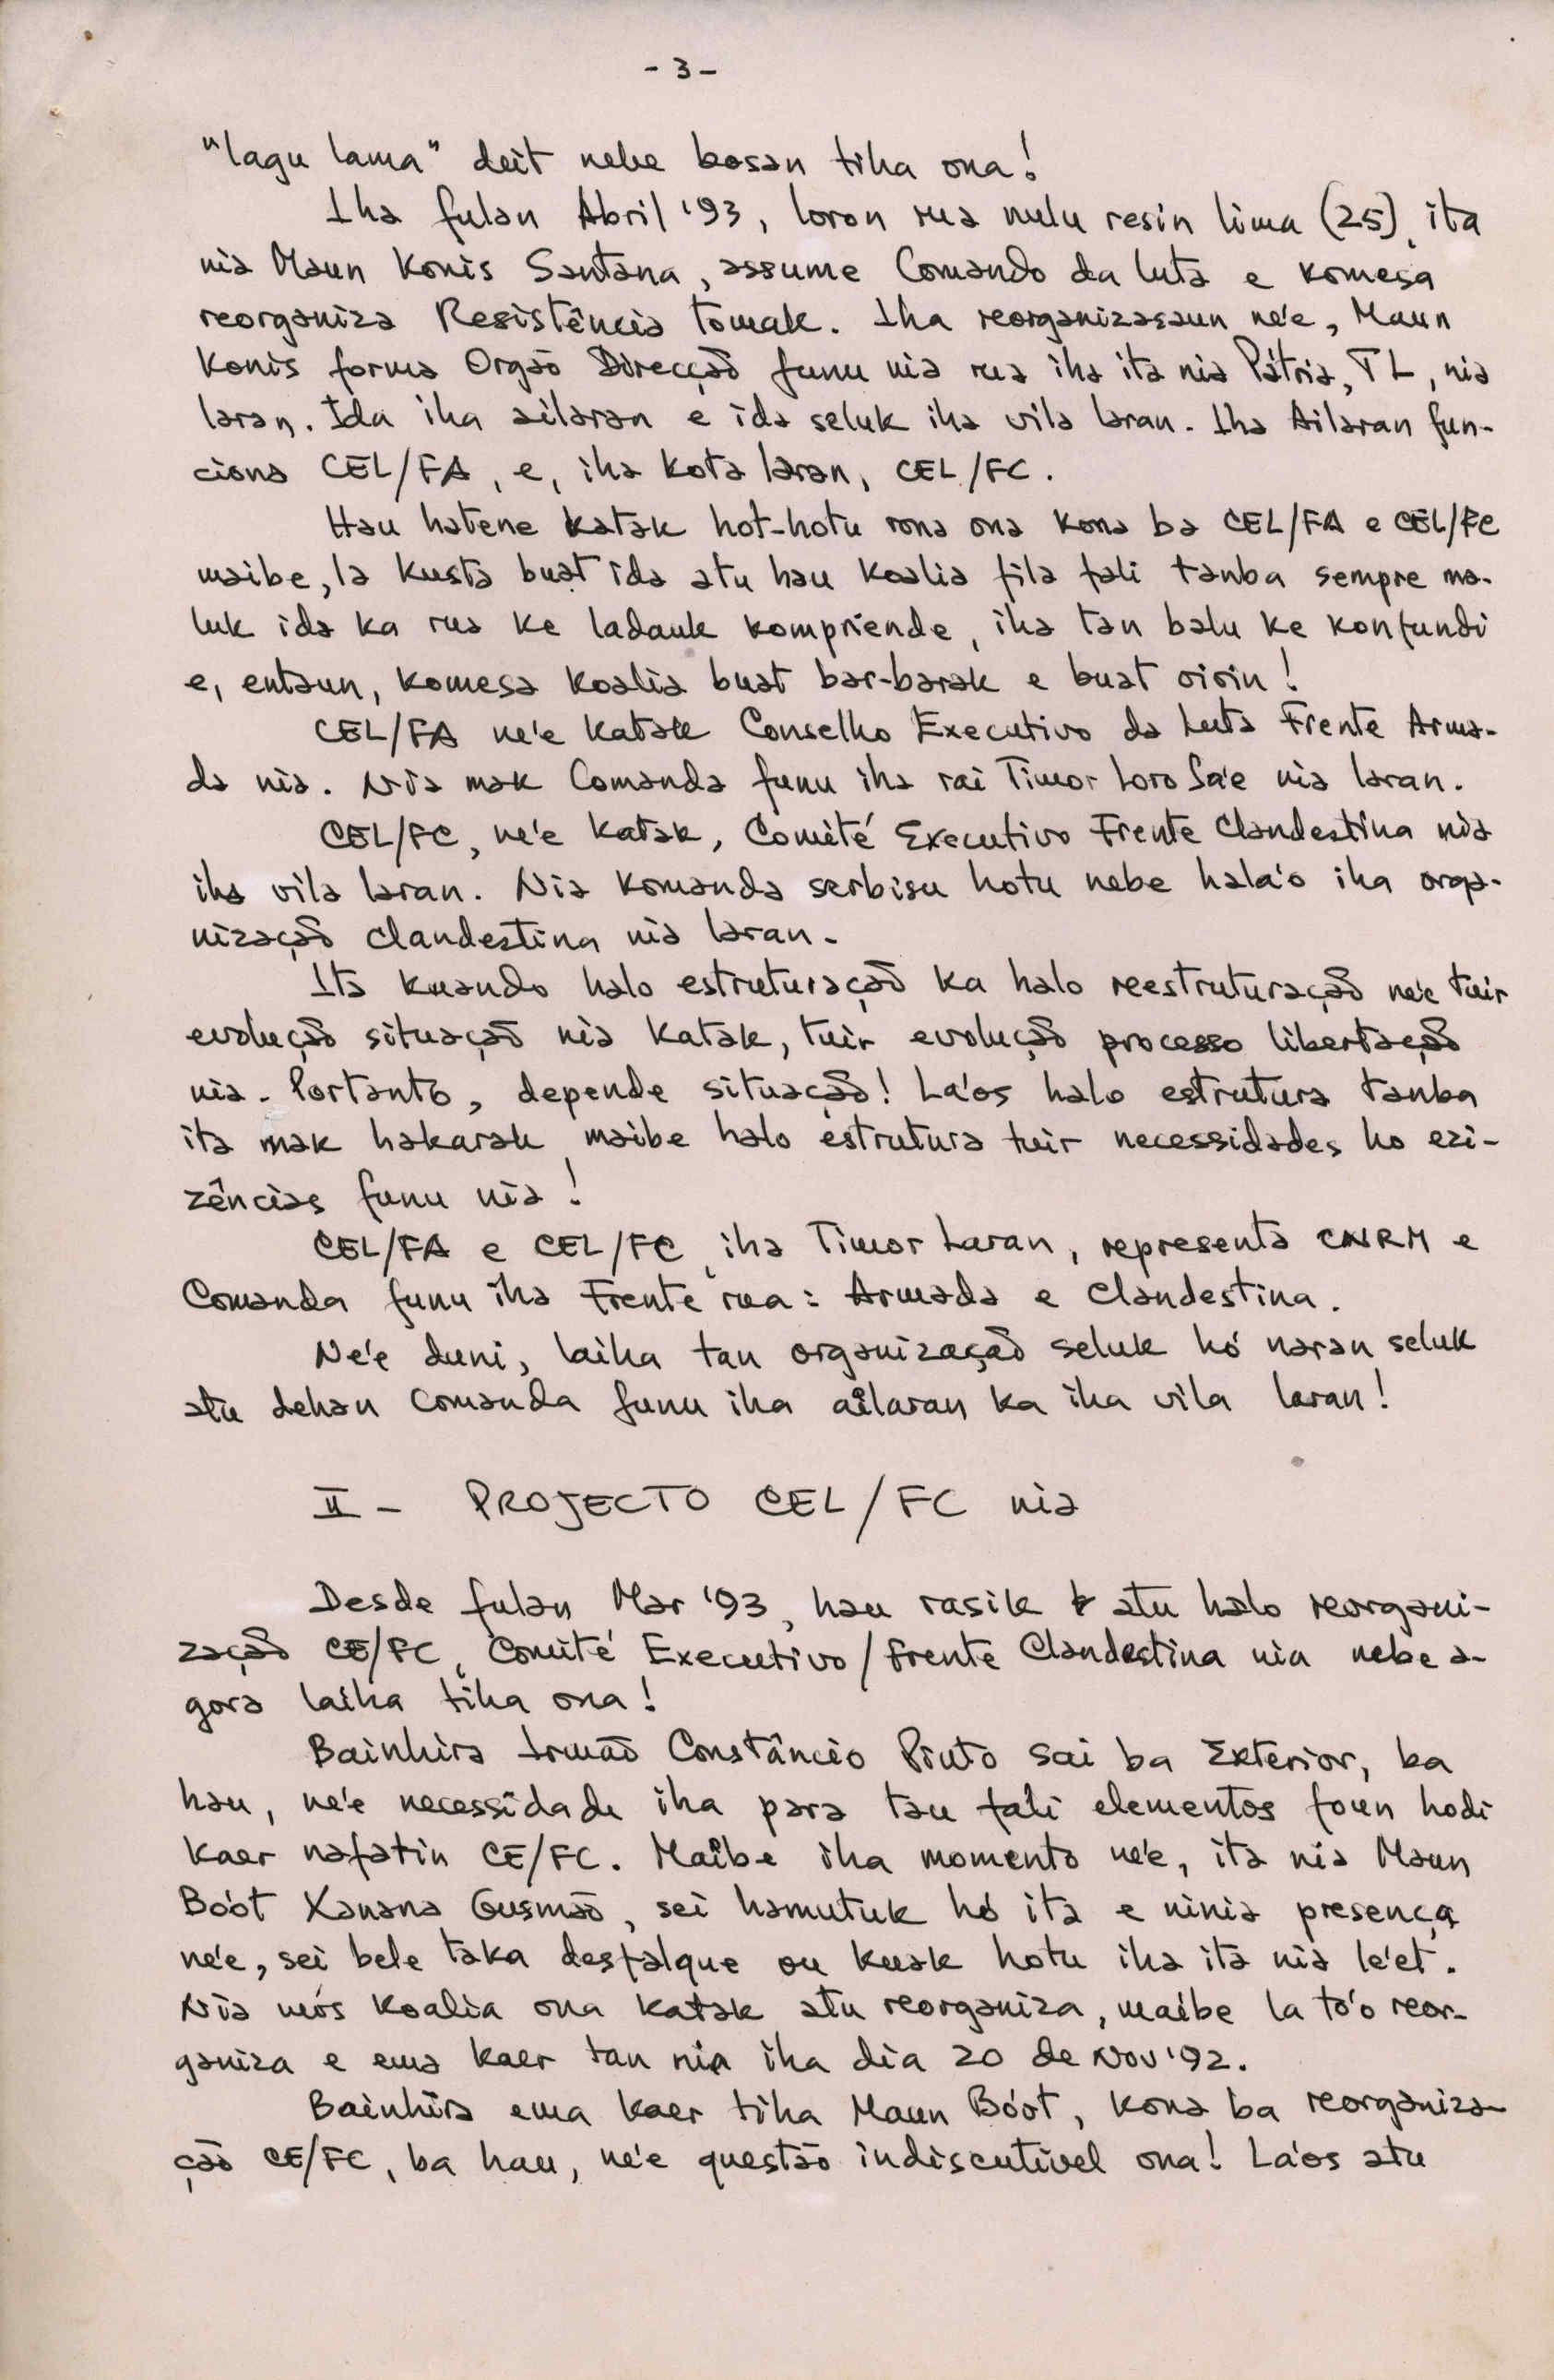 - 3 -
"lagu lama" deit nebe bosan tiha ona!
Iha fulan Abril '93, loron rua nulu resin lima (25), ita
nia Maun Konis Santana, assume Comando da luta e komesa
reorganiza Resistência tomak. Iha reorganizasaun ne'e, Maun
Konis forma Orgão Direcção funu nia rua iha ita nia Pátria, TL, nia
laran. Ida iha ailaran e ida seluk iha vila laran. Iha Ailaran fun-
ciona CEL/FA, e, iha kota laran, CEL/FC.
Hau hatene katak hot-hotu rona ona kona ba CEL/FA e CEL/FC
maibe, la kusta buat ida atu hau koalia fila fali tanba sempre ma-
luk ida ka rua ke ladauk kompriende, iha tan balu ke konfundi
e, entaun, komesa koalia buat bar-barak e buat oioin!
CEL/FA ne'e katak Conselho Executivo da Luta Frente Arma-
da nia. Nia mak Comanda funu iha rai Timor Loro Sa'e nia laran.
CEL/FC, ne'e katak, Comité Executivo Frente Clandestina nia
iha vila laran. Nia komanda serbisu hotu nebe hala'o iha orga-
nização clandestina nia laran.
Ita kuando halo estruturação ka halo reestruturação ne'e tuir
evolução situação nia katak, tuir evolução processo libertação
nia. Portanto, depende situação! La'os halo estrutura tanba
ita mak hakarak maibe halo estrutura tuir necessidades ho ezi-
zências funu nia!
CEL/FA e CEL/FC, iha Timor Laran, representa CNRM e
Comanda funu iha Frente rua: Armada e Clandestina.
Ne'e duni, laiha tan organização seluk hó naran seluk
atu dehan comanda funu iha ailaran ka iha vila laran!
II - PROJECTO CEL/FC nia
Desde fulan Mar '93, hau rasik atu halo reorgani-
zação CE/FC, Comité Executivo/Frente Clandestina nia nebe a-
gora laiha tiha ona!
Bainhira Irmão Constâncio Pinto sai ba Exterior, ba
hau, ne'e necessidade iha para tau fali elementos foun hodi
kaer nafatin CE/FC. Maibe iha momento ne'e, ita nia Maun
Bo'ot Xanana Gusmão, sei hamutuk hó ita e ninia presença
ne'e, sei bele taka desfalque ou kuak hotu iha ita nia le'et.
Nia mós koalia ona katak atu reorganiza, maibe la to'o reor-
ganiza e ema kaer tan nia iha dia 20 de Nov '92.
Bainhira ema kaer tiha Maun Bo'ot, kona ba reorganiza-
ção CE/FC, ba hau, ne'e questão indiscutível ona! La'os atu